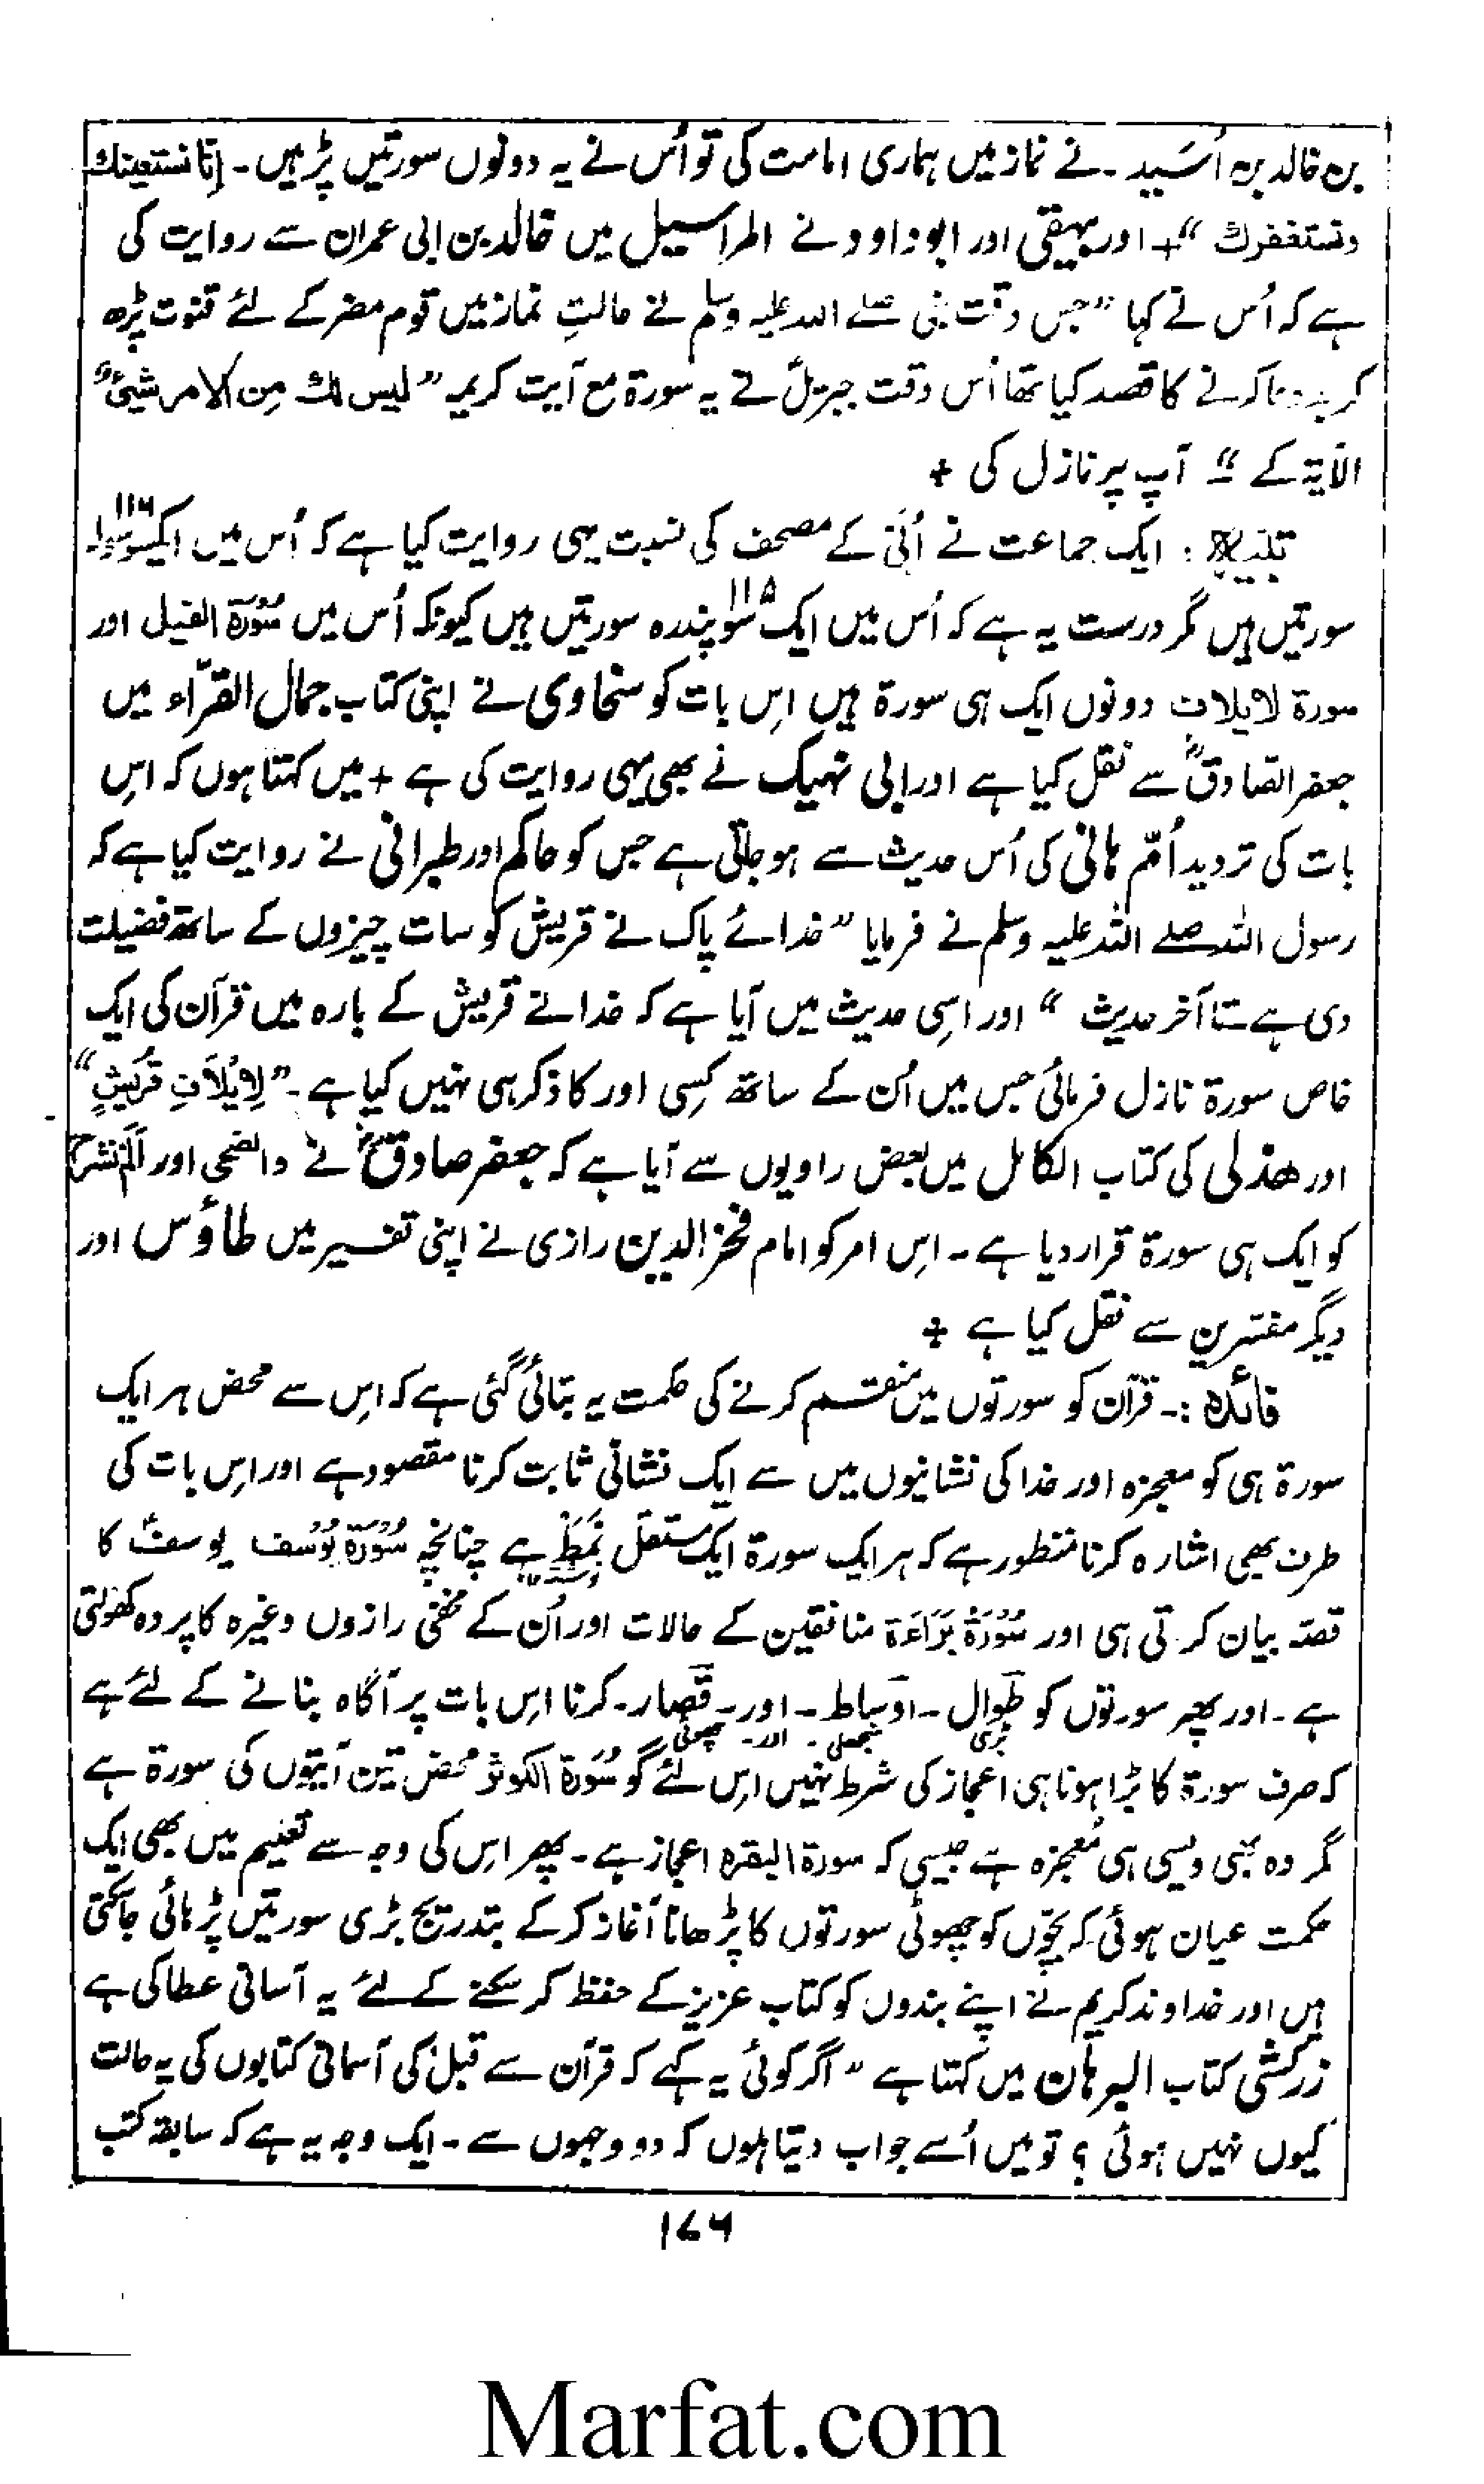 بن خالد بن اُسَید ۔ نے نماز میں ہماری امامت کی تو اُس نے یہ دونوں سورتیں پڑہیں ۔ اِنّا نستعینك
ونستغفرك “ + اور بیہقی اور ابو داود نے المراسیل میں خالد بن ابی عمران سے روایت کی
ہے کہ اُس نے کہا ”جس وقت نبی صلے اللہ علیہ وسلم نے حالتِ نماز میں قوم مضر کے لئے قنوت پڑھ
کر بددعا کرنے کا قصد کیا تھا اُس وقت جبرئیلؑ نے یہ سورۃ مع آیت کریمہ ”لیس لك مِن الامر شیئٌ“
الآیۃ کے “ آپ پر نازل کی +
تنبیہ : ایک جماعت نے اُبَی کے مصحف کی نسبت یہی روایت کیا ہے کہ اُس میں ایکسو سولہ ۱۱۶
سورتیں ہیں مگر درست یہ ہے کہ اُس میں ایک سو پندرہ ۱۱۵ سورتیں ہیں کیونکہ اُس میں سُوْرَۃ الفیل اور
سورۃ لایلاف دونوں ایک ہی سورۃ ہیں اِس بات کو سخاوی نے اپنی کتاب جمال القرّاء میں
جعفر الصادقؓ سے نقل کیا ہے اور ابی نہیک نے بھی یہی روایت کی ہے + میں کہتا ہوں کہ اِس
بات کی تردید اُمّ ہانی کی اُس حدیث سے ہو جاتی ہے جس کو حاکم اور طبرانی نے روایت کیا ہے کہ
رسول اللہ صلے اللہ علیہ وسلم نے فرمایا ”خدائے پاک نے قریش کو سات چیزوں کے ساتھ فضیلت
دی ہے تا آخر حدیث “ اور اسی حدیث میں آیا ہے کہ خدا نے قریش کے بارہ میں قرآن کی ایک
خاص سورۃ نازل فرمائی جس میں اُن کے ساتھ کِسی اور کا ذکر ہی نہیں کیا ہے ۔ ”لِاِیْلَافِ قُرَیْشٍ“
اور ھذلی کی کتاب الکامل میں بعض راویوں سے آیا ہے کہ جعفر صادقؓ نے والضحیٰ اور اَلَمْ نشرح
کو ایک ہی سورۃ قرار دیا ہے ۔ اِس امر کو امام فخر الدین رازی نے اپنی تفسیر میں طاؤس اور
دیگر مفسّرین سے نقل کیا ہے +
فائدہ :۔ قرآن کو سورتوں میں منقسم کرنے کی حکمت یہ بتائی گئی ہے کہ اِس سے محض ہر ایک
سورۃ ہی کو معجزہ اور خدا کی نشانیوں میں سے ایک نشانی ثابت کرنا مقصود ہے اور اِس بات کی
طرف بھی اشارہ کرنا منظور ہے کہ ہر ایک سورۃ ایک مستقل نَمَطْ ہے چنانچہ سُوْرَۃ یُوْسُف یوسفؑ کا
قصّہ بیان کرتی ہی اور سُوْرَۃ بَرَاءَۃ منافقین کے حالات اور اُن کے مخفی رازوں وغیرہ کا پردہ کھولتی
ہے ۔ اور پھر سورتوں کو طَوِال ۔ اوْسَاط ۔ اور ۔ قصار ۔ کرنا اِس بات پر آگاہ بنانے کے لئے ہے
بڑی منجھلی ۔ اور ۔ چھوٹی
کہ صرف سورۃ کا بڑا ہونا ہی اعجاز کی شرط نہیں اِس لئے گو سُوْرَۃ الکوثر محض تین آیتوں کی سورۃ ہے
مگر وہ بھی ویسی ہی مُعجزہ ہے جیسی کہ سورۃ البقرہ اعجاز ہے ۔ پھر اِس کی وجہ سے تعلیم میں بھی ایک
حکمت عیان ہوئی کہ بچّوں کو چھوٹی سورتوں کا پڑھانا آغاز کر کے بتدریج بڑی سورتیں پڑہائی جا سکتی
ہیں اور خداوند کریم نے اپنے بندوں کو کتاب عزیز کے حفظ کر سکنے کے لئے یہ آسانی عطا کی ہے
زرکشی کتاب البرہان میں کہتا ہے ” اگر کوئی یہ کہے کہ قرآن سے قبل کی آسمانی کتابوں کی یہ حالت
کیوں نہیں ہوئی ؟ تو میں اُسے جواب دیتا ہوں کہ دو وجہوں سے ۔ ایک وجہ یہ ہے کہ سابقہ کتب
۱۷۶
Marfat.com